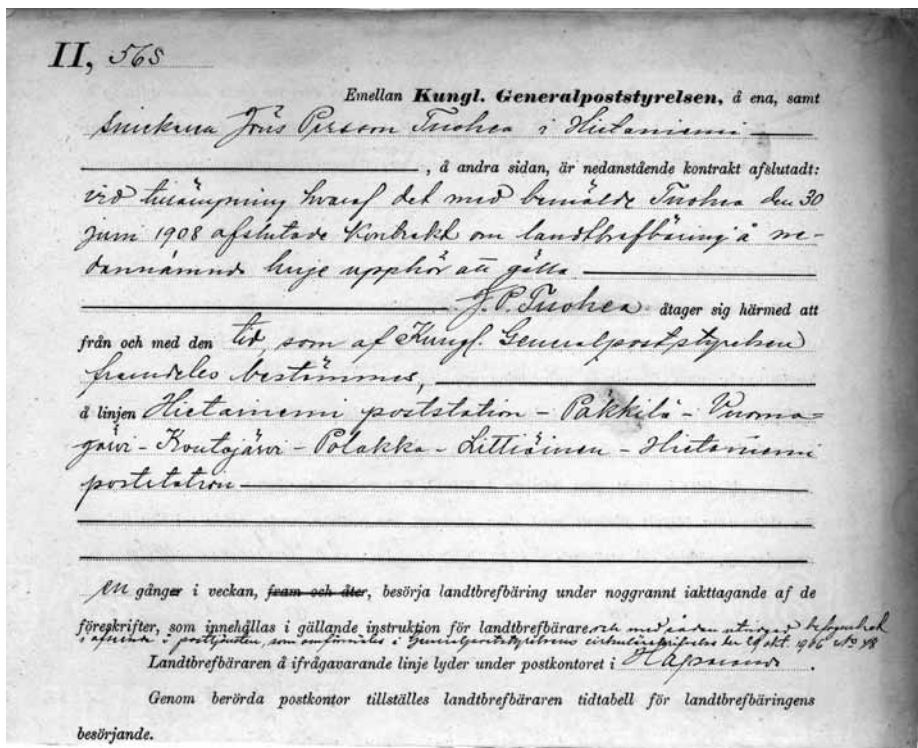 II, 568
Emellan Kungl. Generalpoststyrelsen, å ena, samt
snickaren Jöns Persson Tuohea i Hietaniemi
, å andra sidan, är nedanstående kontrakt afslutadt:
vid tillämpning hvaraf det med bemälde Tuohea den 30
juni 1908 afslutade kontrakt om landtbrefbäring å ne-
dannämnde linje upphör att gälla.
J. P. Tuohea åtager sig härmed att
från och med den tid, som af Kungl. Generalpoststyrelsen
framdeles bestämmes,
å linjen Hietaniemi poststation – Päkkilä – Vuoma-
järvi – Kontojärvi – Polakka – Littiäinen – Hietaniemi
poststation
en gånger i veckan, fram och åter, besörja landtbrefbäring under noggrannt iakttagande af de
föreskrifter, som innehållas i gällande instruktion för landtbrefbärare och med sådan utvidgad befogenhet
i posttjänsten, som omförmäles i Generalpoststyrelsens cirkulärskrifvelse den 29 okt. 1906 No 48
Landtbrefbäraren å ifrågavarande linje lyder under postkontoret i Haparanda.
Genom berörda postkontor tillställes landtbrefbäraren tidtabell för landtbrefbäringens
besörjande.